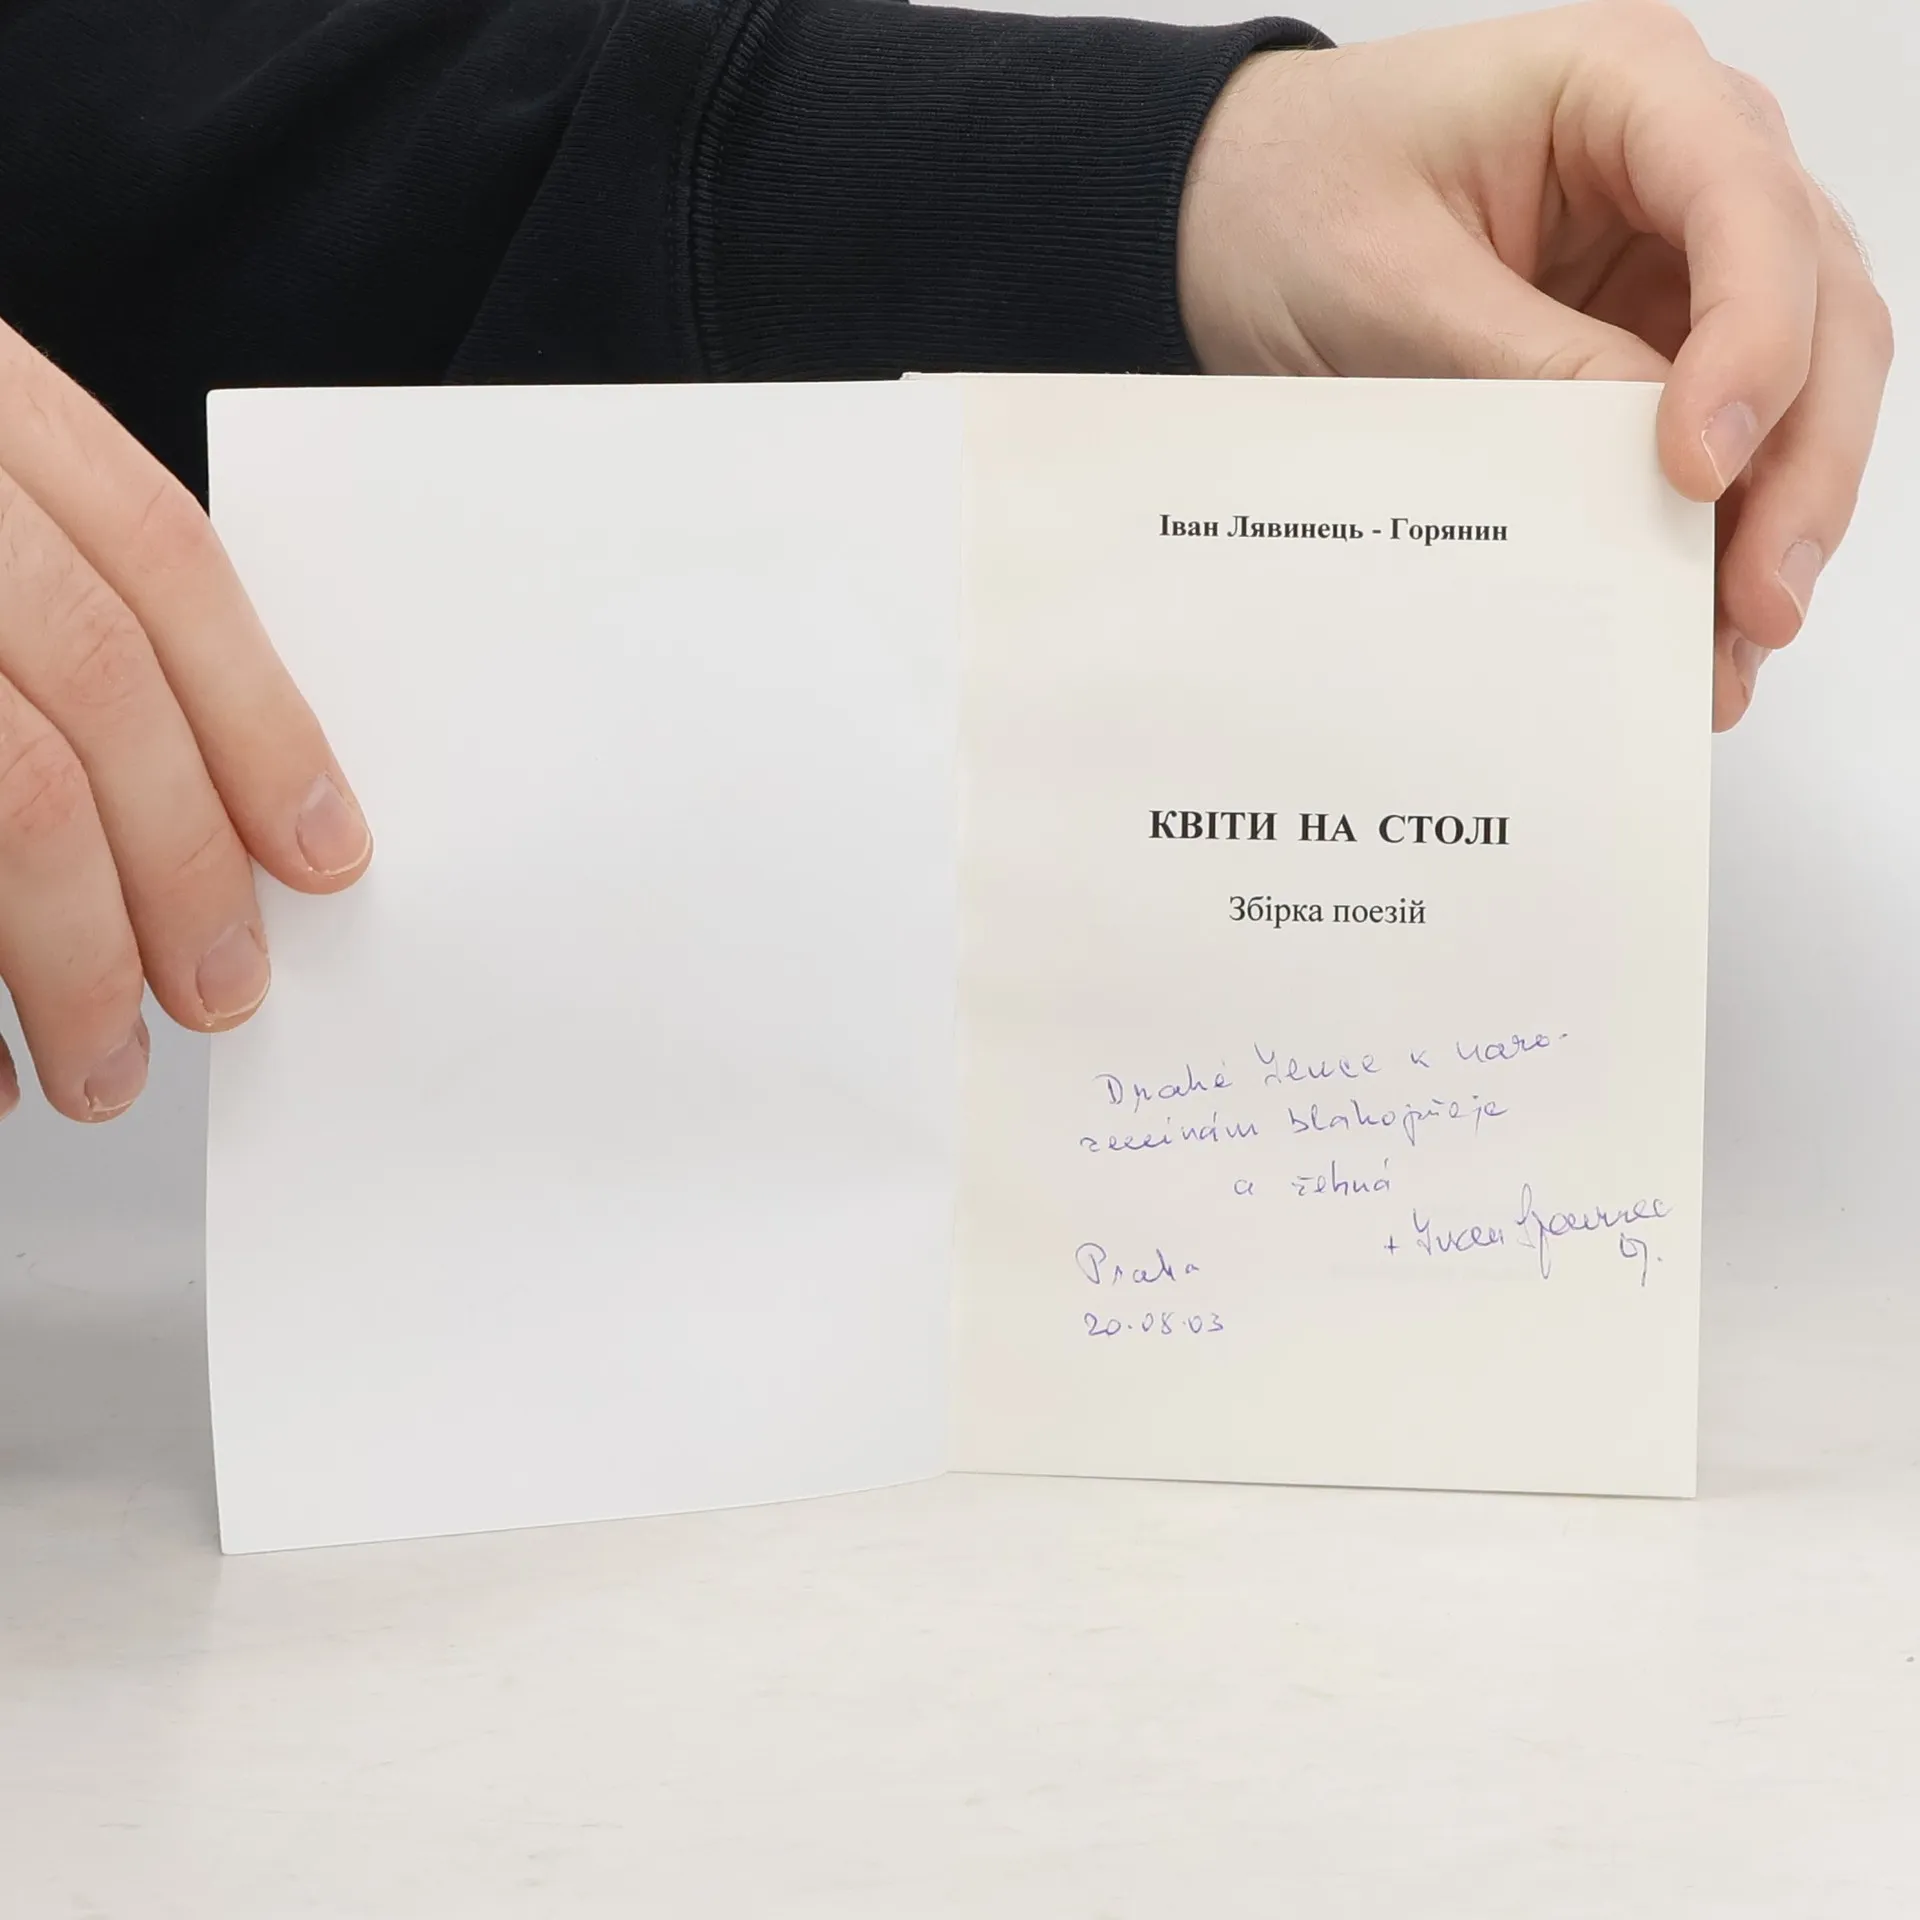 Іван Лявинець - Горянин
КВІТИ НА СТОЛІ
Збірка поезій
Drahé Zence k naro-
zeninám blahopřeje
a žehná
+ Ivan Ljavinec
Praha
20.08.03